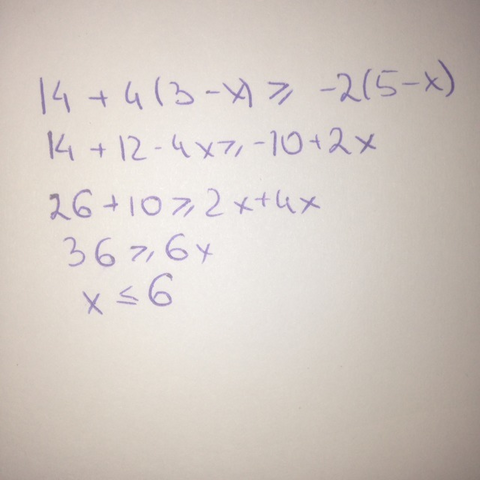 14 + 4(3-x) ⩾ -2(5-x)
14 + 12 - 4x ⩾ -10 + 2x
26 + 10 ⩾ 2x + 4x
36 ⩾ 6x
x ≤ 6